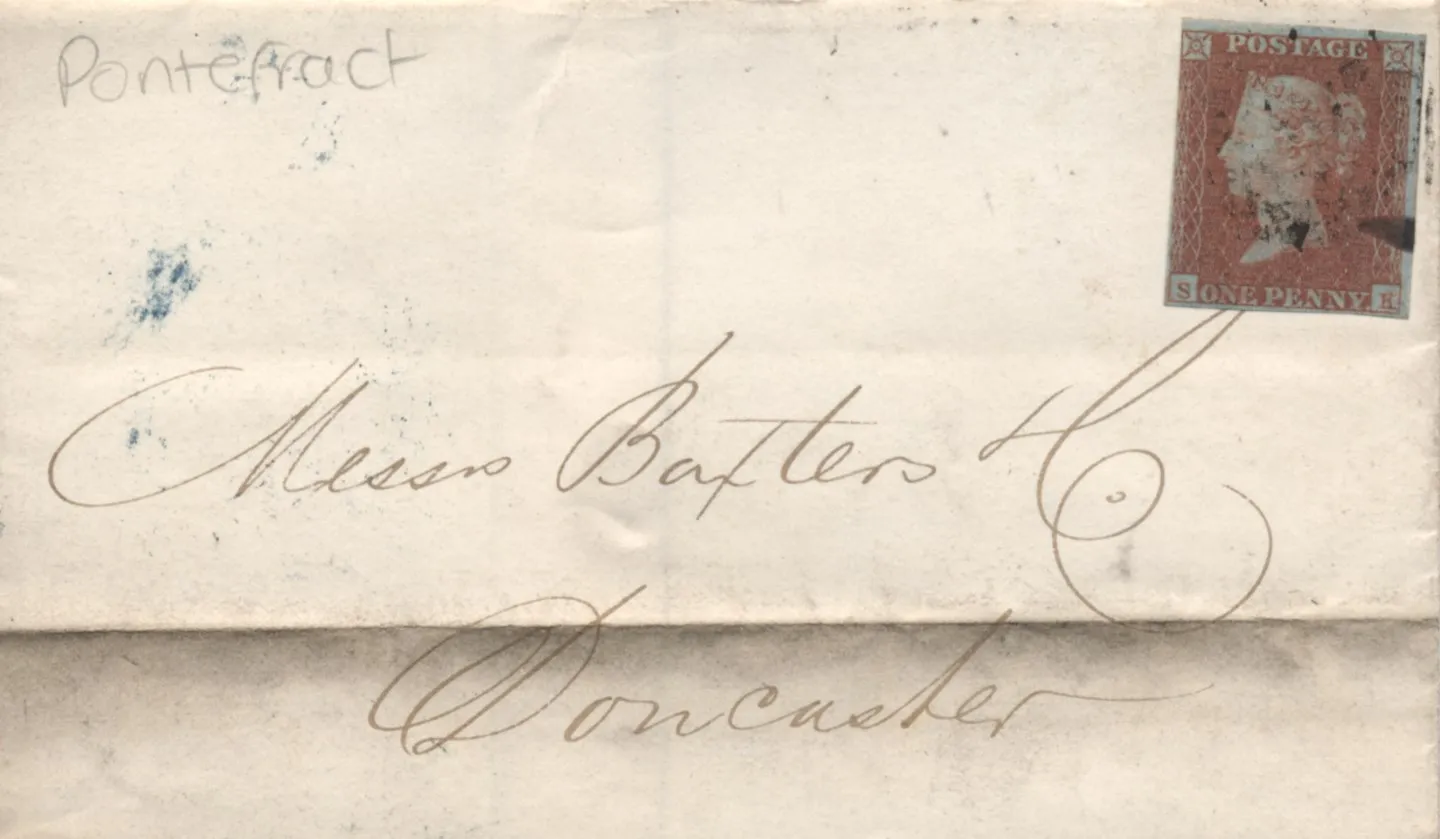 Pontefract
POSTAGE
S ONE PENNY
Messrs Baxters & Co
Doncaster